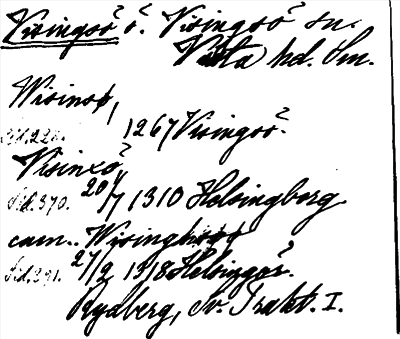 Visingsö ö. Visingsö sn.
Vista hd. Sm.
Wisinsø,
Sid. 228. 1267 Visingsö.
Visinxö,
Sid. 370. 20/7 1310 Helsingborg
cum.. Wisinghsø
Sid. 391. 27/2 1318 Helsingör.
Rydberg, Sv. Trakt. I.